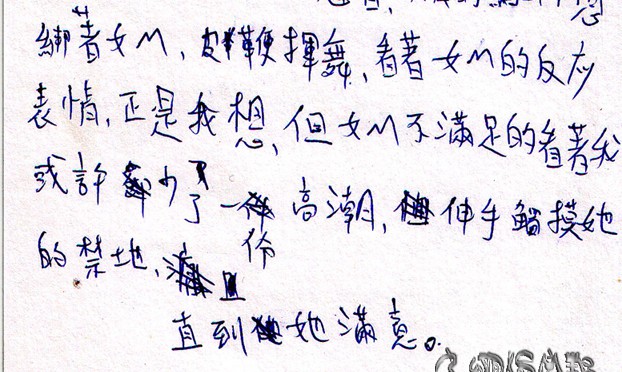 綁著女M，皮鞭揮舞，看著女M的反应
表情，正是我想，但女M不滿足的看著我
或許少了一份高潮，伸手觸摸她
的禁地，
直到她滿意。